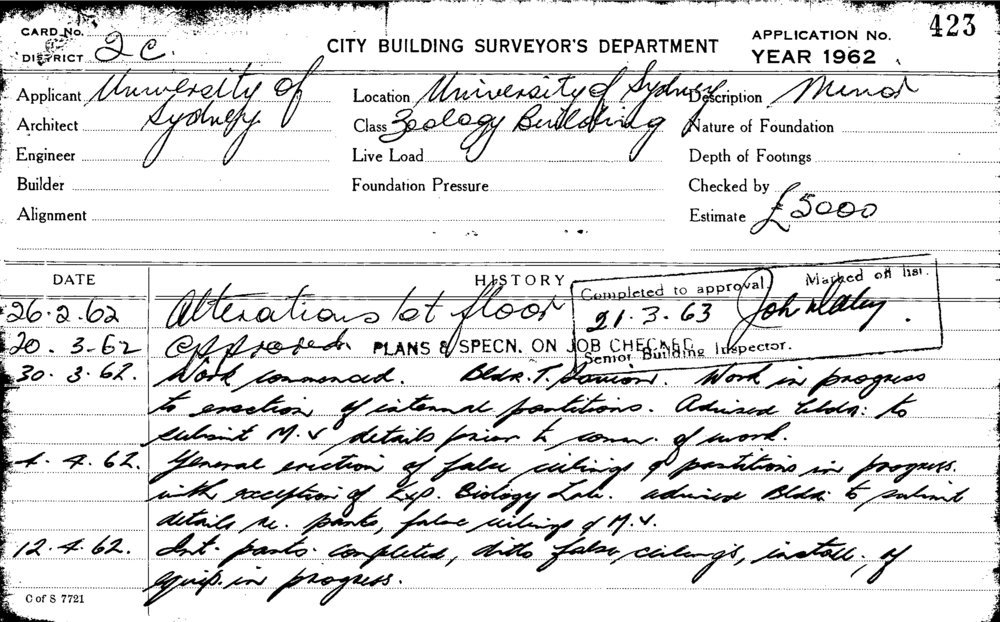 CARD No.
DISTRICT 2C.
CITY BUILDING SURVEYOR'S DEPARTMENT
APPLICATION No. 423
YEAR 1962
Applicant University of
Location University of Sydney
Description Minor
Architect Sydney
Class Zoology Building
Nature of Foundation
Engineer
Live Load
Depth of Footings
Builder
Foundation Pressure
Checked by
Alignment
Estimate £5000
DATE
HISTORY
Completed to approval. Marked off list.
21.3.63
Senior Building Inspector.
26.2.62 Alterations 1st floor
20.3-62 Approved. PLANS & SPECN. ON JOB CHECKED
30.3.62. Work commenced. Bldr. T. Work in progress
to erection of internal partitions. Advised bldr: to
submit M.V details prior to comm. of work.
4.4.62. General erection of false ceilings & partitions in progress.
with exception of Exp. Biology Lab. advised Bldr to submit
details re. parts, false ceilings & M.V.
12.4.62. Int. parts. completed, ditto false ceilings, install. of
equip. in progress.
C of S 7721